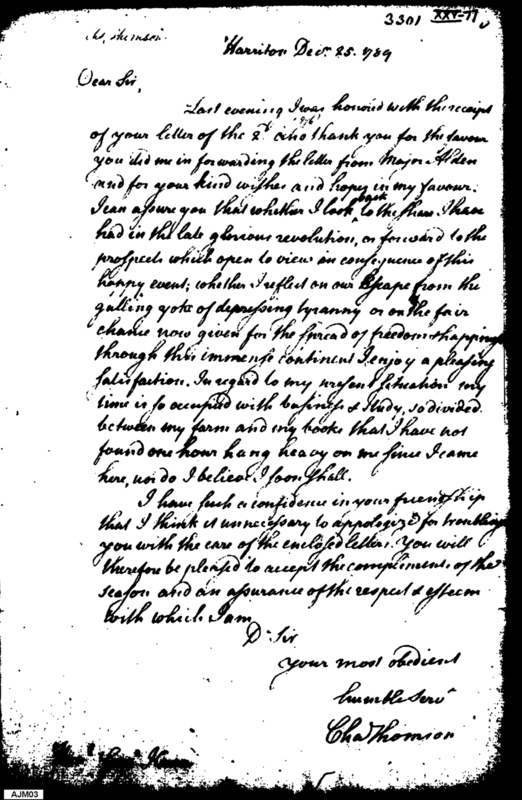 3301 XXV-11
Ch. Thomson.
Harriton Decr. 25. 1789
Dear Sir,
Last evening I was honored with the receipt
of your letter of the 2d & thank you for the favour
you did me in forwarding the letter from Major Alden
and for your kind wishes and hopes in my favour.
I can assure you that whether I look back to the share I have
had in the late glorious revolution, or forward to the
prospects which open to view in consequence of this
happy event; whether I reflect on our Escape from the
galling yoke of depressing tyranny or on the fair
chance now given for the spread of freedom & happiness
through this immense continent I enjoy a pleasing
satisfaction. In regard to my present situation my
time is so occupied with business & study, so divided
between my farm and my books that I have not
found one hour hang heavy on me since I came
here, nor do I believe I soon shall.
I have such a confidence in your friendship
that I think it unnecessary to appologize for troubling
you with the care of the enclosed letters. You will
therefore be pleased to accept the compliments of the
season and an assurance of the respect & esteem
with which I am
Dr Sir
your most obedient
humble servt
Chas Thomson
Genl Knox
AJM03